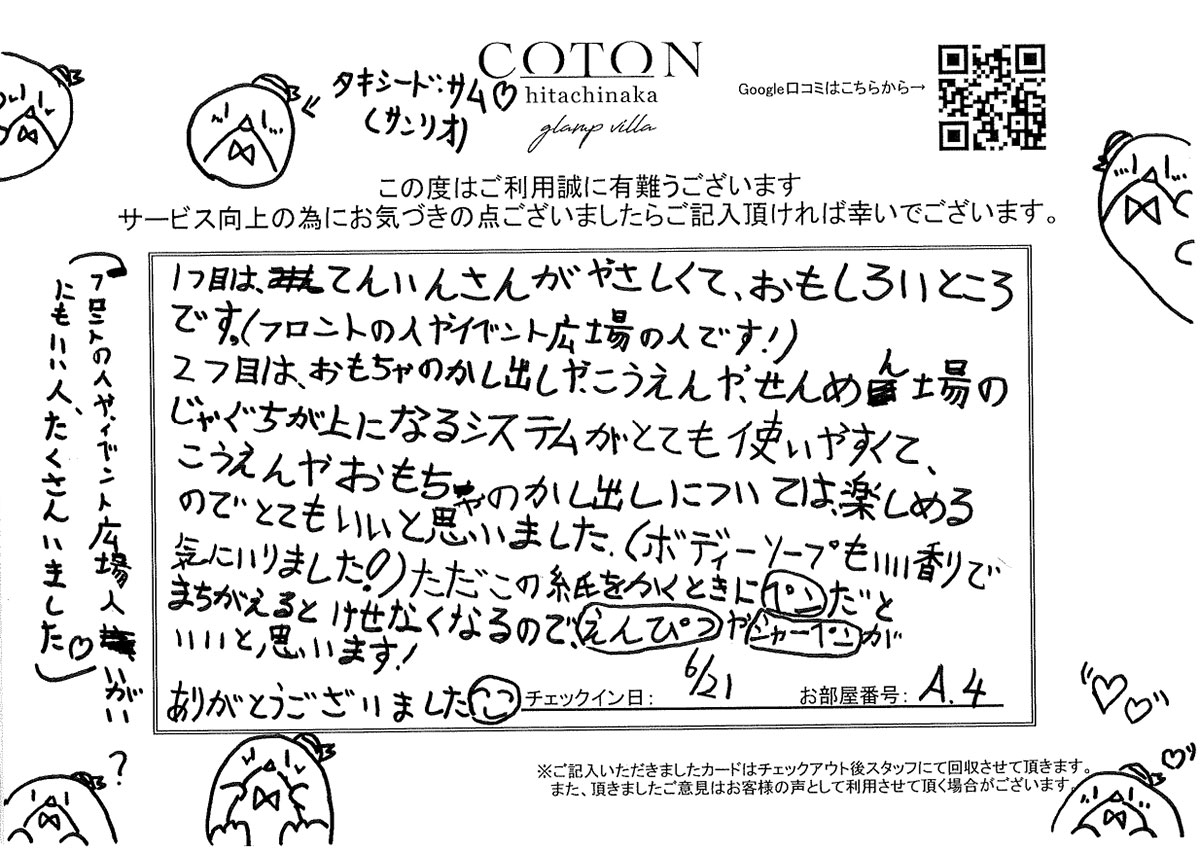 COTON
hitachinaka
glamp villa
Google口コミはこちらから→
タキシードサム♡
(サンリオ)
この度はご利用誠に有難うございます
サービス向上の為にお気づきの点ございましたらご記入頂ければ幸いでございます。
1つ目は、てんいんさんがやさしくて、おもしろいところ
です。(フロントの人やイベント広場の人です!)
2つ目は、おもちゃのかし出しや、こうえんや、せんめん場の
じゃぐちが上になるシステムがとても使いやすくて、
こうえんやおもちゃのかし出しについては、楽しめる
のでとてもいいと思いました。(ボディーソープもいい香りで
気にいりました!)ただこの紙をかくときにペンだと
まちがえるとけせなくなるので、えんぴつやシャーペンが
いいと思います!
ありがとうございました
チェックイン日: 6/21 お部屋番号: A.4
フロントの人や、イベント広場人いがい
にもいい人、たくさんいました♡
?
※ご記入いただきましたカードはチェックアウト後スタッフにて回収させて頂きます。
また、頂きましたご意見はお客様の声として利用させて頂く場合がございます。